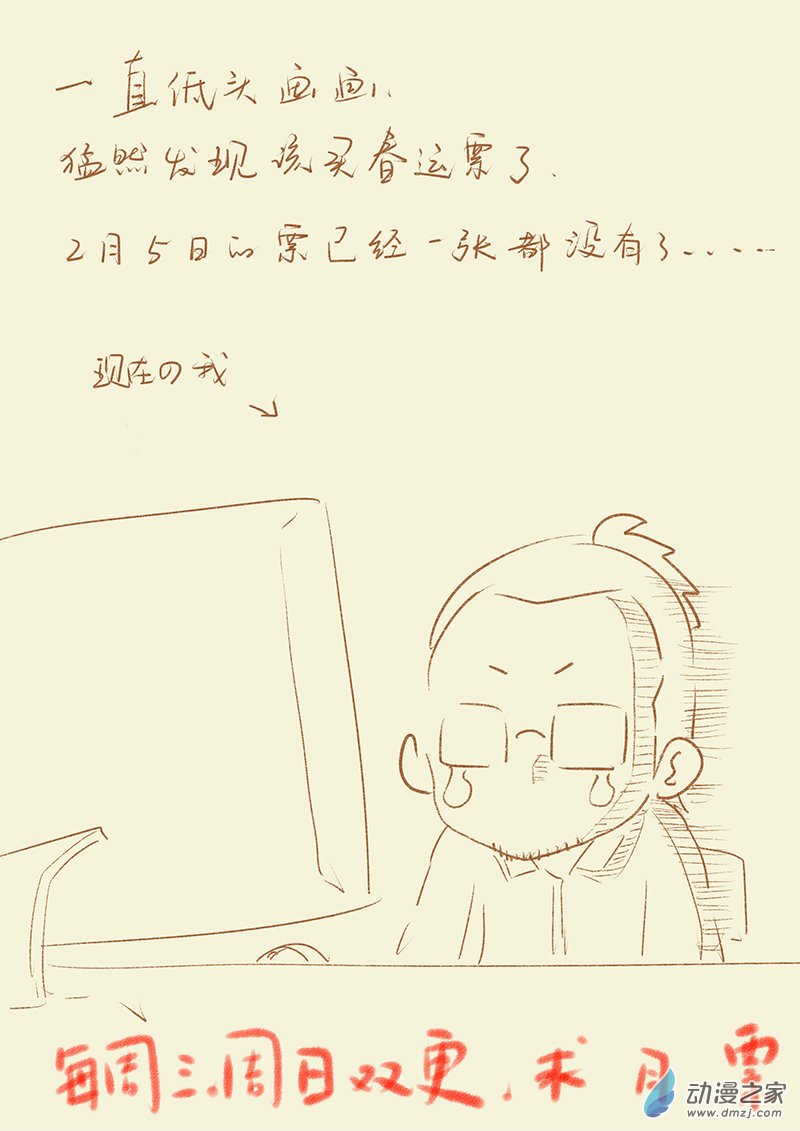 一直低头画画、
猛然发现该买春运票了、
2月5日の票已经一张都没有了.....
现在の我
每周三、周日双更、求月票
动漫之家
www.dmzj.com